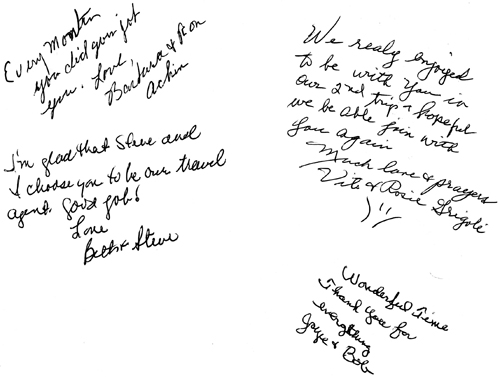 Every
you did
you. Love,
Barbara &
I'm glad that Steve and
I choose you to be our travel
agent. Good job!
Love
Beth & Steve
We realy enjoyed
to be with you in
our 2nd trip & hopeful
we be able join with
you again
Much love & prayers
Vito & Rosie Grigoli
Wonderful Time
Thank you for
everything
Joyce & Bob